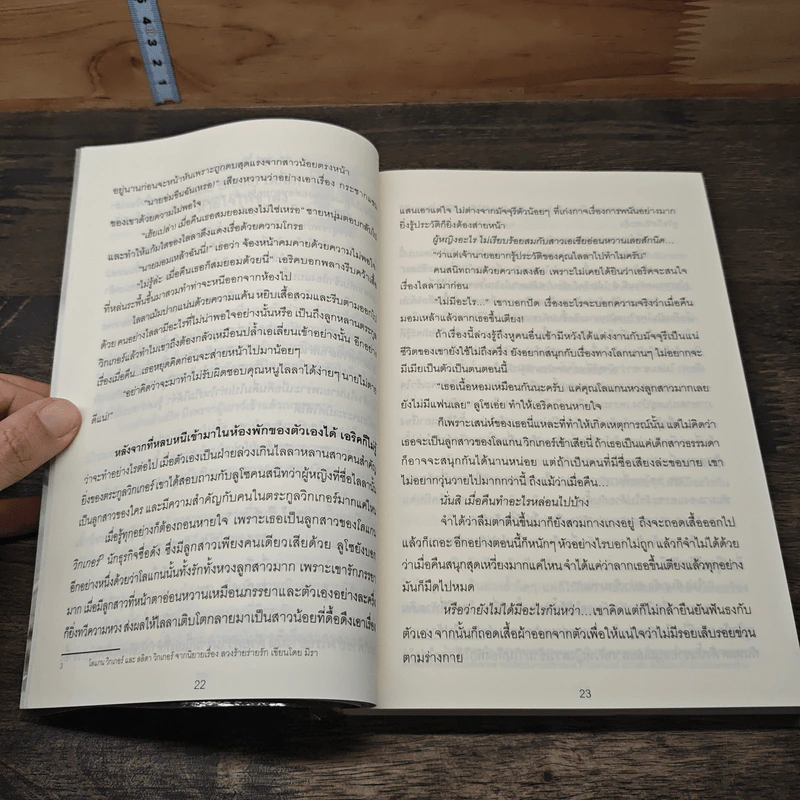 5 4 3 2 1
อยู่นานก่อนจะหน้าหันเพราะถูกตบสุดแรงจากสาวน้อยตรงหน้า
"นายข่มขืนฉันเหรอ!" เสียงหวานว่าอย่างเอาเรื่อง กระชากแขน
ของเขาด้วยความไม่พอใจ
"เฮ้ยเปล่า! เมื่อคืนเธอสมยอมเองไม่ใช่เหรอ" ชายหนุ่มตอบกลับไป
และทำให้แก้มใสของไลลาดึงแดงเรื่อด้วยความโกรธ
"นายมอมเหล้าฉันนี่!" เธอว่า จ้องหน้าคมคายด้วยความไม่พอใจ
"ไม่รู้ล่ะ เมื่อคืนเธอก็สมยอมด้วยนี่" เอริคบอกพลางรีบคว้าเสื้อ
ที่หล่นระพื้นขึ้นมาสวมทำท่าจะหนีออกจากห้องไป
ไลลาเม้มปากแน่นด้วยความแค้น หยิบเสื้อสวมและรีบตามออกไป
ด้วย คนอย่างไลลามีอะไรที่ไม่น่าพอใจอย่างนั้นหรือ เป็นถึงลูกหลานตระกูล
วิกเกอร์แล้วทำไมเขาถึงต้องกลัวเหมือนปล้ำเอเลี่ยนเข้าอย่างนั้น อีกอย่าง
เรื่องเมื่อคืน... เธอหยุดคิดก่อนจะส่ายหน้าไปมาน้อยๆ
"อย่าคิดว่าจะมาทำไม่รับผิดชอบคุณหนูไลลาได้ง่ายๆ นายไม่ตาย
ดีแน่!"
หลังจากที่หลบหนีเข้ามาในห้องพักของตัวเองได้ เอริคก็ไม่รู้
ว่าจะทำอย่างไรต่อไป เมื่อตัวเองเป็นฝ่ายล่วงเกินไลลาหลานสาวคนสำคัญ
ยิ่งของตระกูลวิกเกอร์ เขาได้สอบถามกับลูโซคนสนิทว่าผู้หญิงที่ชื่อไลลานั้น
เป็นลูกสาวของใคร และมีความสำคัญกับคนในตระกูลวิกเกอร์มากแค่ไหน
เมื่อรู้ทุกอย่างก็ต้องถอนหายใจ เพราะเธอเป็นลูกสาวของโลแกน
วิกเกอร์³ นักธุรกิจชื่อดัง ซึ่งมีลูกสาวเพียงคนเดียวเสียด้วย ลูโซยังบอก
อีกอย่างหนึ่งด้วยว่าโลแกนนั้นทั้งรักทั้งหวงลูกสาวมาก เพราะเขารักภรรยา
มาก เมื่อมีลูกสาวที่หน้าตาอ่อนหวานเหมือนภรรยาและตัวเองอย่างละครึ่ง
ก็ยิ่งทวีความหวง ส่งผลให้ไลลาเติบโตกลายมาเป็นสาวน้อยที่ดื้อดึงเอาเรื่อง
3 โลแกน วิกเกอร์ และ ลลิตา วิกเกอร์ จากนิยายเรื่อง ลวงร้ายร่ายรัก เขียนโดย มิรา
22
แสนเอาแต่ใจ ไม่ต่างจากมัจจุรีตัวน้อยๆ ที่เก่งกาจเรื่องการพนันอย่างมาก
ยิ่งรู้ประวัติก็ยิ่งต้องส่ายหน้า
ผู้หญิงอะไร ไม่เรียบร้อยสมกับสาวเอเชียอ่อนหวานเลยสักนิด...
"ว่าแต่เจ้านายอยากรู้ประวัติของคุณไลลาไปทำไมครับ"
คนสนิทถามด้วยความสงสัย เพราะไม่เคยได้ยินว่าเอริคจะสนใจ
เรื่องไลลามาก่อน
"ไม่มีอะไร..." เขาบอกปัด เรื่องอะไรจะบอกความจริงว่าเมื่อคืน
มอมเหล้าแล้วลากเธอขึ้นเตียง!
ถ้าเรื่องนี้ล่วงรู้ถึงหูคนอื่นเข้ามีหวังได้แต่งงานกับมัจจุรีเป็นแน่
ชีวิตของเขายังใช้ไม่ถึงครึ่ง ยังอยากสนุกกับเรื่องทางโลกนานๆ ไม่อยากจะ
มีเมียเป็นตัวเป็นตนตอนนี้
"เธอเนื้อหอมเหมือนกันนะครับ แต่คุณโลแกนหวงลูกสาวมากเลย
ยังไม่มีแฟนเลย" ลูโซเอ่ย ทำให้เอริคถอนหายใจ
ก็เพราะเสน่ห์ของเธอนี่แหละที่ทำให้เกิดเหตุการณ์นั้น แต่ไม่คิดว่า
เธอจะเป็นลูกสาวของโลแกน วิกเกอร์เข้าเสียนี่ ถ้าเธอเป็นแค่เด็กสาวธรรมดา
ก็อาจจะสนุกกันได้นานหน่อย แต่ถ้าเป็นคนที่มีชื่อเสียงล่ะขอบาย เขา
ไม่อยากวุ่นวายไปมากกว่านี้ ถึงแม้ว่าเมื่อคืน...
นั่นสิ เมื่อคืนทำอะไรหล่อนไปบ้าง
จำได้ว่าลืมตาตื่นขึ้นมาก็ยังสวมกางเกงอยู่ ถึงจะถอดเสื้อออกไป
แล้วก็เถอะ อีกอย่างตอนนี้ก็หนักๆ หัวอย่างไรบอกไม่ถูก แล้วก็จำไม่ได้ด้วย
ว่าเมื่อคืนสนุกสุดเหวี่ยงมากแค่ไหน จำได้แค่ว่าลากเธอขึ้นเตียงแล้วทุกอย่าง
มันก็มืดไปหมด
หรือว่ายังไม่ได้มีอะไรกันหว่า...เขาคิดแต่ก็ไม่กล้ายืนยันฟันธงกับ
ตัวเอง จากนั้นก็ถอดเสื้อผ้าออกจากตัวเพื่อให้แน่ใจว่าไม่มีรอยเล็บรอยข่วน
ตามร่างกาย
23